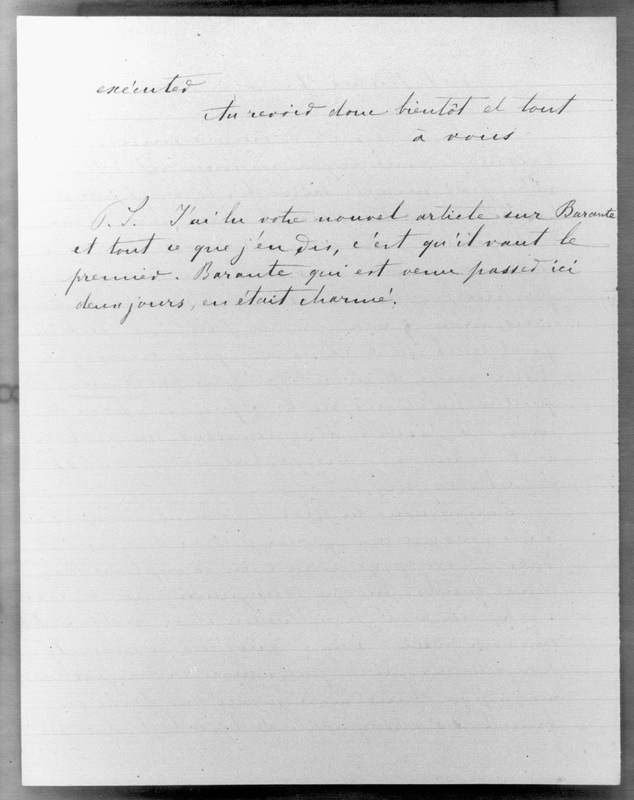 exécuter
Au revoir donc bientôt et tout
à vous
P. S. J'ai lu votre nouvel article sur Barante
et tout ce que j'en dis, c'est qu'il vaut le
premier. Barante qui est venu passer ici
deux jours, en était charmé.